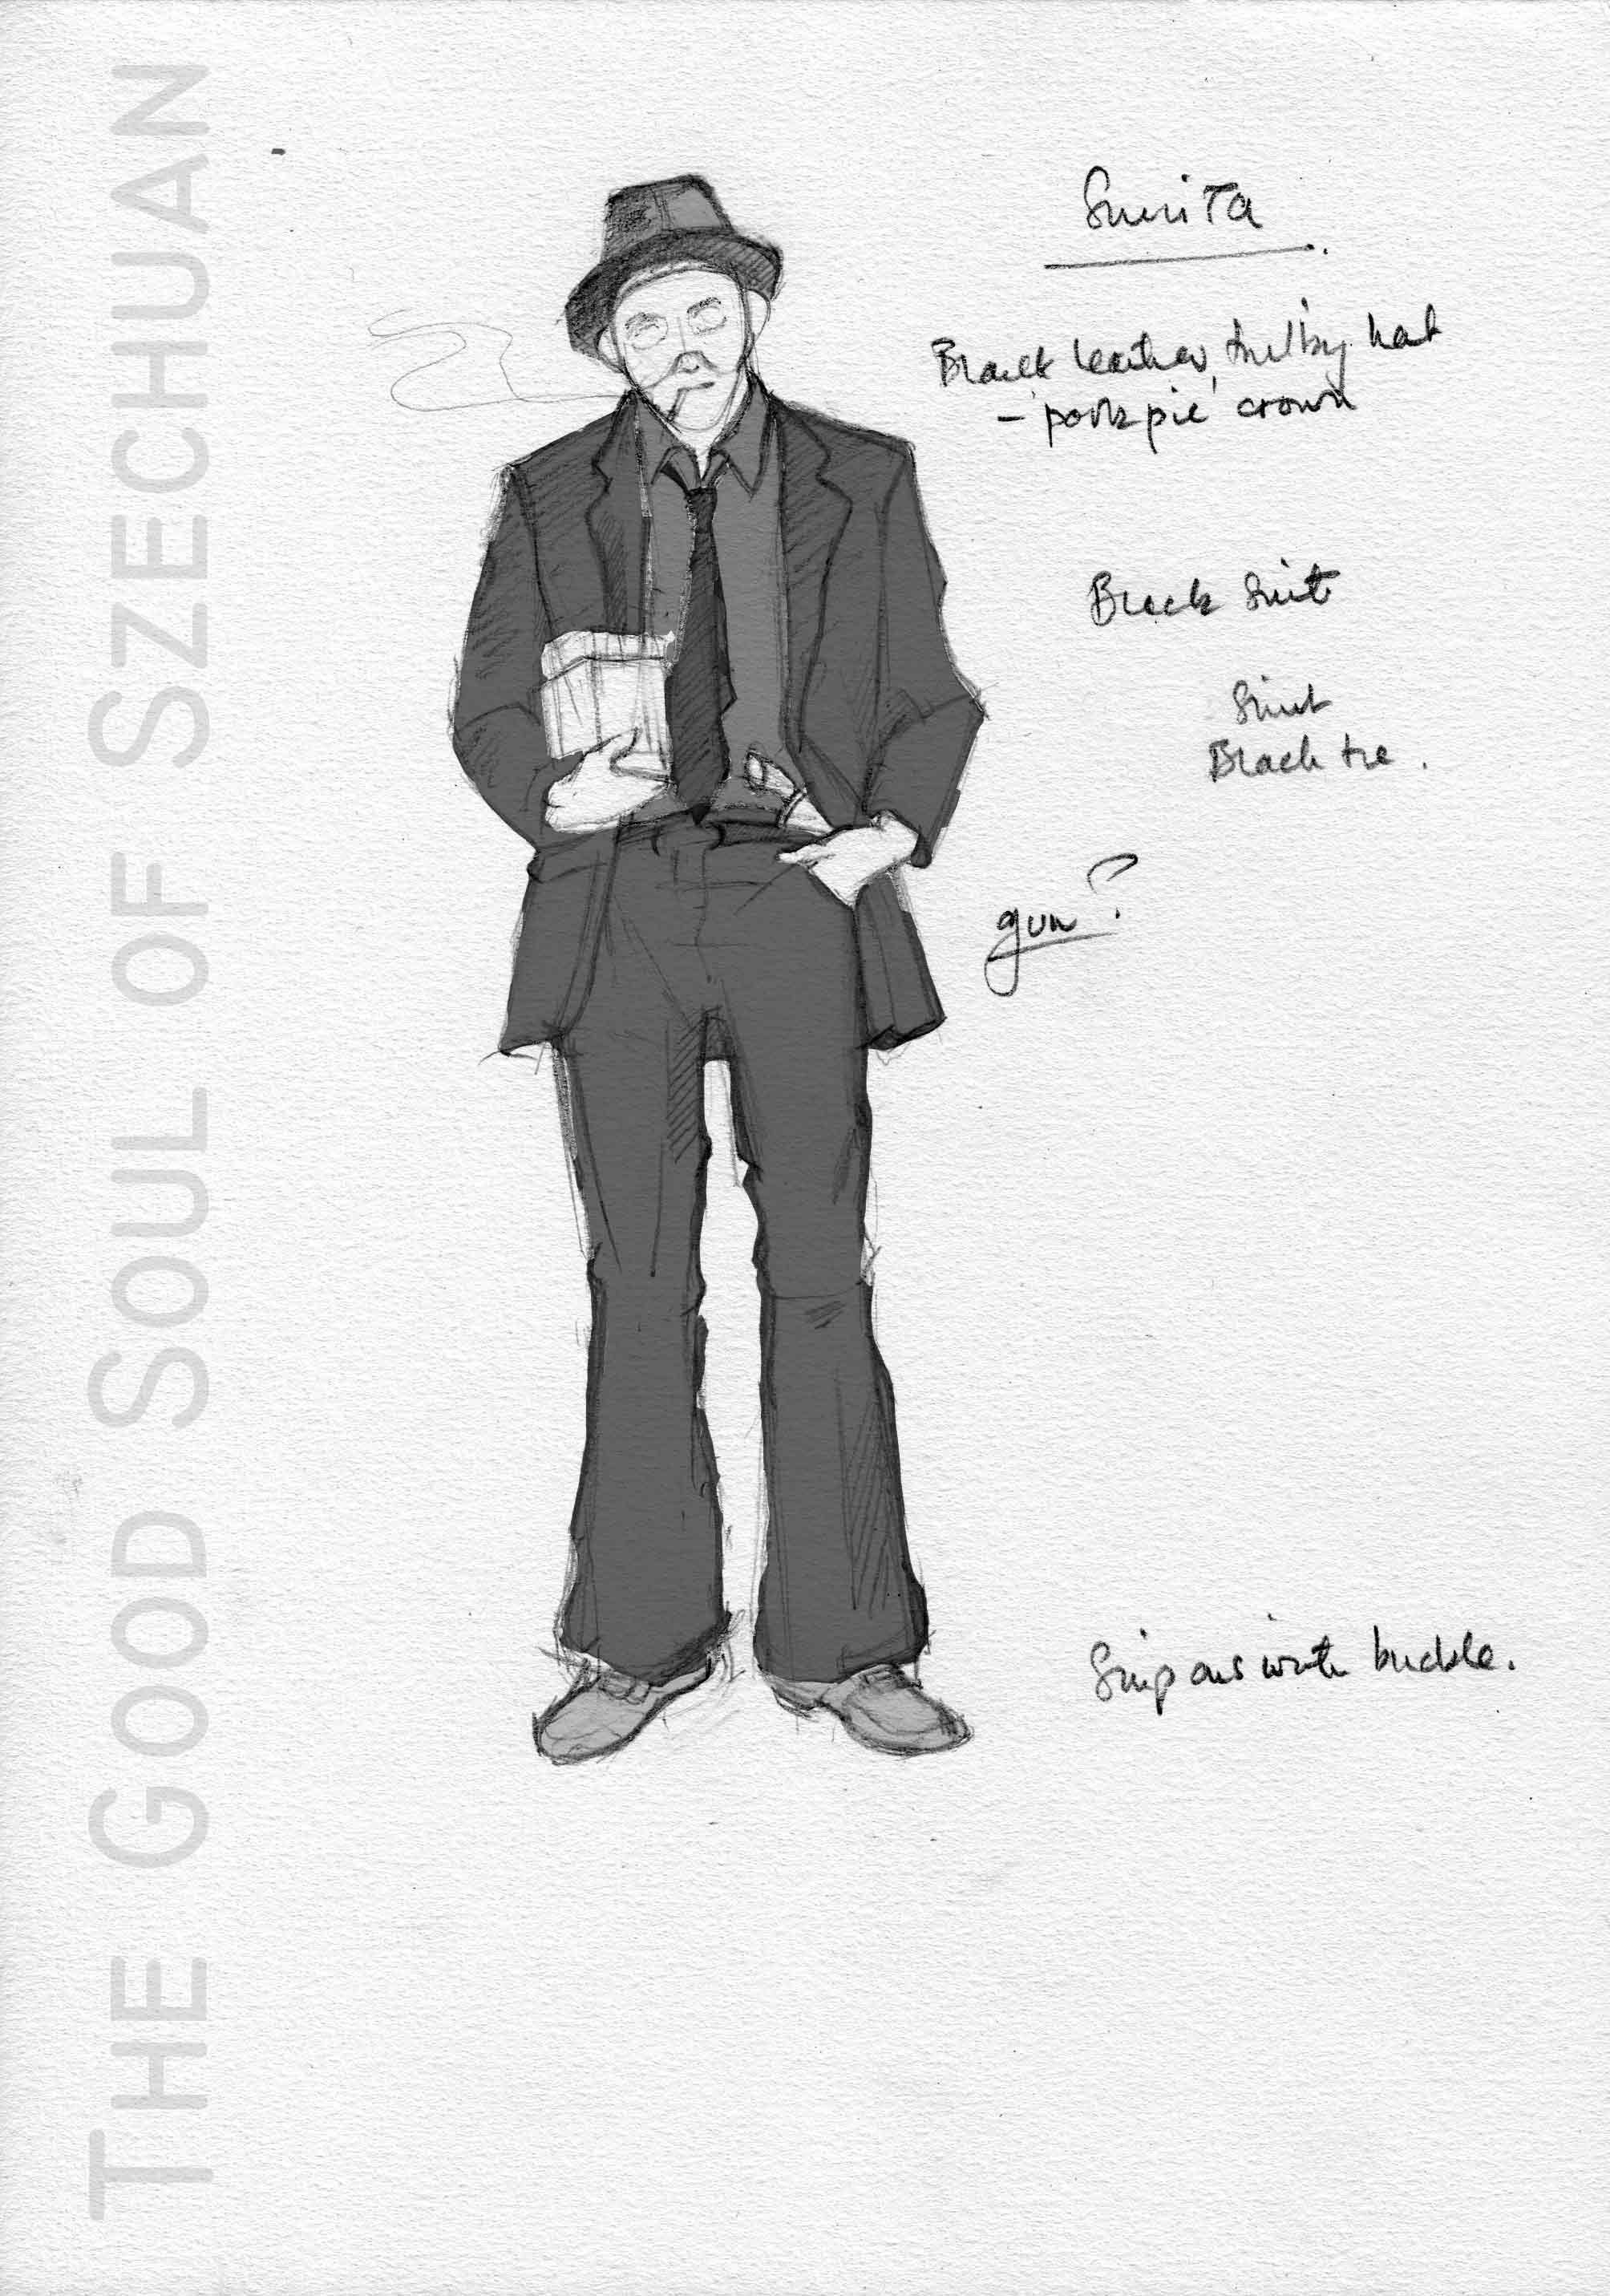 THE GOOD SOUL OF SZECHUAN
Black leather trilby hat
- 'pork pie' crown
Black Suit
Shirt
Black tie.
gun?
Slip ons with buckle.